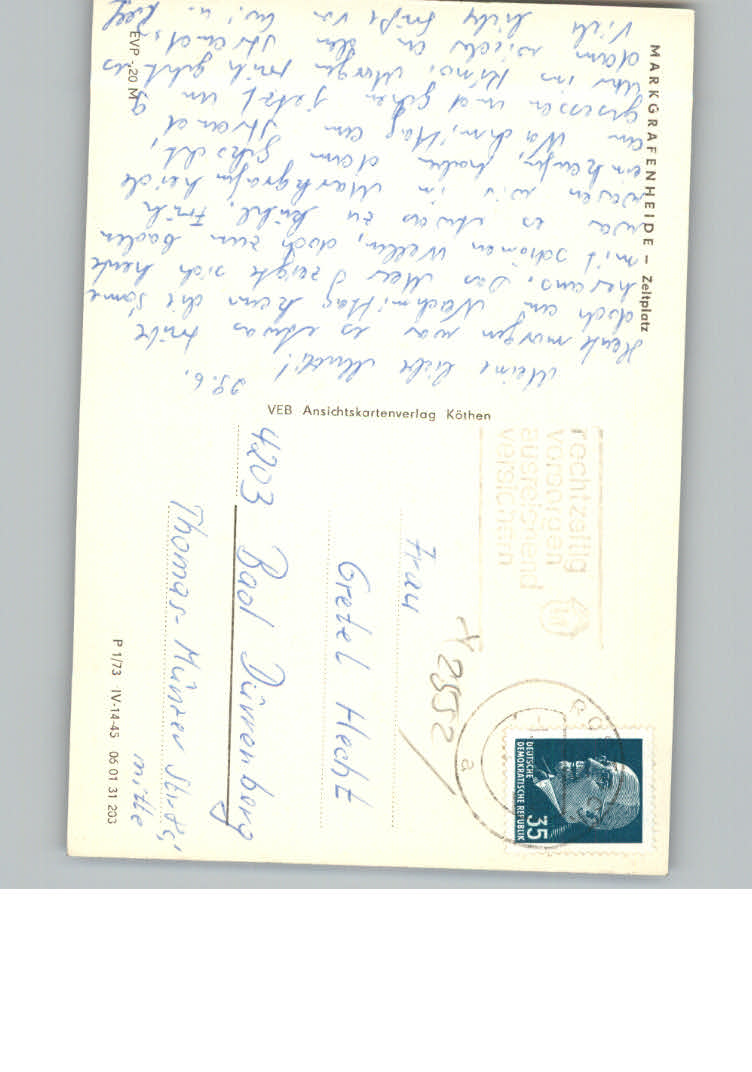 MARKGRAFENHEIDE — Zeltplatz
29.6.
Meine liebe Mutti!
Heute morgen war es etwas trübe
doch am Nachmittag kam die Sonne
heraus. Das Meer zeigte sich heute
mit schönen Wellen, doch zum baden
war es etwas zu kühl. Früh
waren wir in Markgrafenheide
einkaufen, haben dann gekocht,
am Nachmittag am Strand
gesessen und gehen jetzt um 9
Uhr ins Kino. Morgen früh geht es
dann wieder an den Strand.
Viele liebe Grüße von
EVP -,20 M
VEB Ansichtskartenverlag Köthen
rechtzeitig
vorsorgen
ausreichend
versichern
a
DEUTSCHE
DEMOKRATISCHE REPUBLIK
35
Y 2552
Frau
Gretel Hecht
4203 Bad Dürrenberg
Thomas-Münzer Str.
mitte
P 1/73 IV-14-45 06 01 31 203